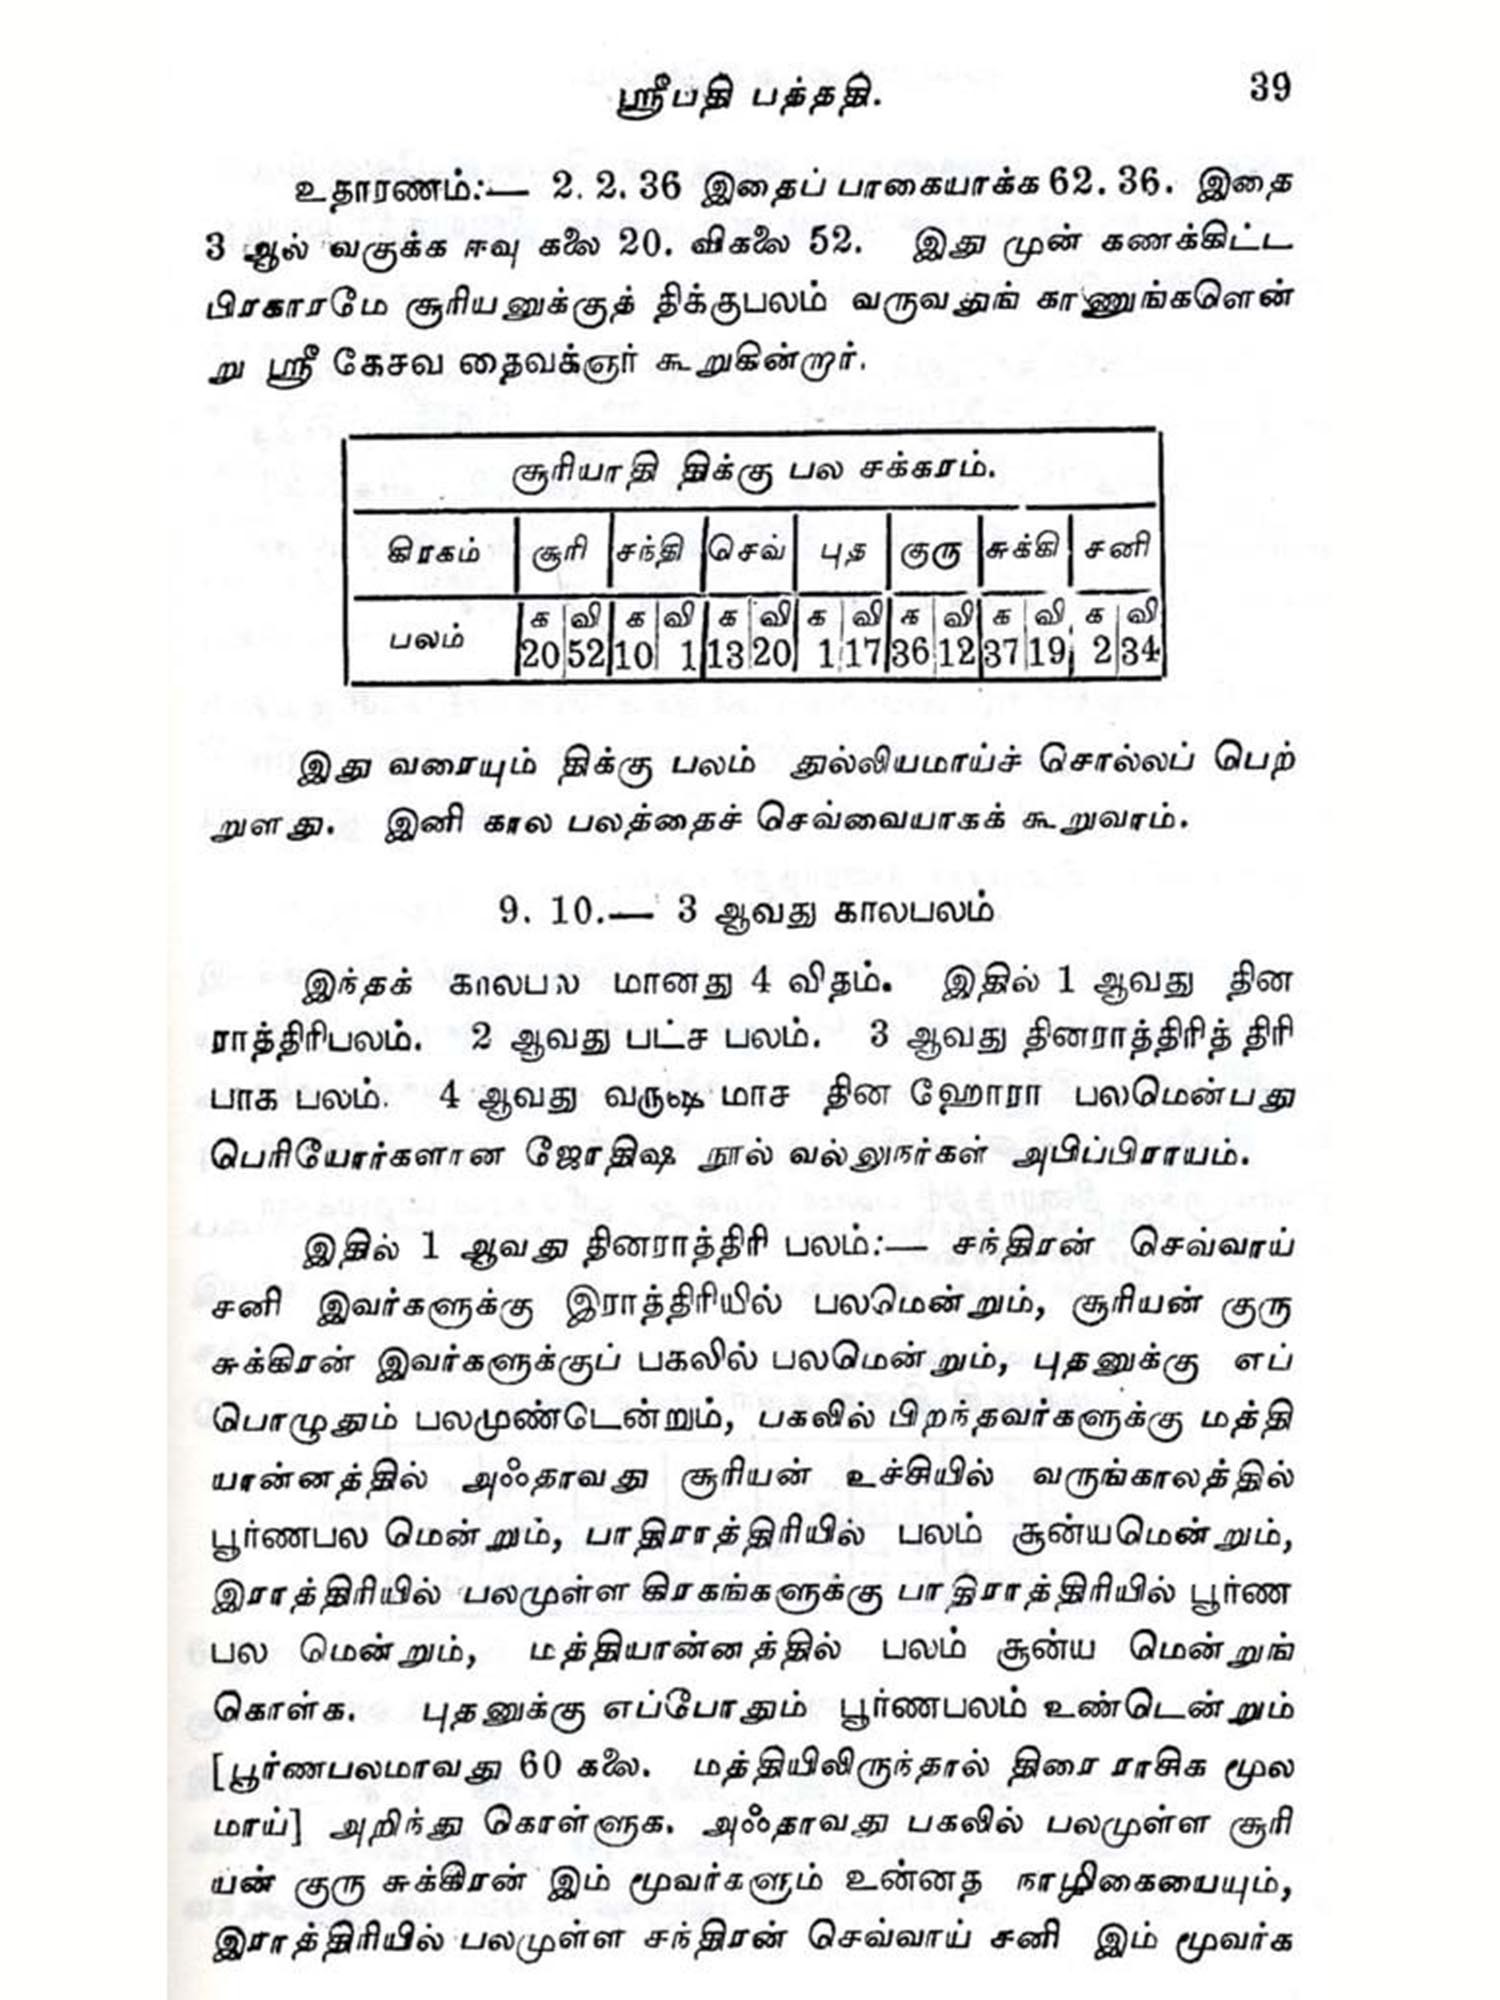 ஸ்ரீபதி பத்ததி.
39
உதாரணம்:— 2. 2. 36 இதைப் பாகையாக்க 62. 36. இதை
3 ஆல் வகுக்க ஈவு கலை 20. விகலை 52. இது முன் கணக்கிட்ட
பிரகாரமே சூரியனுக்குத் திக்குபலம் வருவதுங் காணுங்களென்
று ஸ்ரீ கேசவ தைவக்ஞர் கூறுகின்றார்.
சூரியாதி திக்கு பல சக்கரம்.
கிரகம் சூரி சந்தி செவ் புத குரு சுக்கி சனி
க வி க வி க வி க வி க வி க வி க வி
பலம் 20 52 10 1 13 20 1 17 36 12 37 19 2 34
இது வரையும் திக்கு பலம் துல்லியமாய்ச் சொல்லப் பெற்
றுளது. இனி கால பலத்தைச் செவ்வையாகக் கூறுவாம்.
9. 10.— 3 ஆவது காலபலம்
இந்தக் காலபல மானது 4 விதம். இதில் 1 ஆவது தின
ராத்திரிபலம். 2 ஆவது பட்ச பலம். 3 ஆவது தினராத்திரித் திரி
பாக பலம். 4 ஆவது வருஷ மாச தின ஹோரா பலமென்பது
பெரியோர்களான ஜோதிஷ நூல் வல்லுநர்கள் அபிப்பிராயம்.
இதில் 1 ஆவது தினராத்திரி பலம்:— சந்திரன் செவ்வாய்
சனி இவர்களுக்கு இராத்திரியில் பலமென்றும், சூரியன் குரு
சுக்கிரன் இவர்களுக்குப் பகலில் பலமென்றும், புதனுக்கு எப்
பொழுதும் பலமுண்டென்றும், பகலில் பிறந்தவர்களுக்கு மத்தி
யான்னத்தில் அஃதாவது சூரியன் உச்சியில் வருங்காலத்தில்
பூர்ணபல மென்றும், பாதிராத்திரியில் பலம் சூன்யமென்றும்,
இராத்திரியில் பலமுள்ள கிரகங்களுக்கு பாதிராத்திரியில் பூர்ண
பல மென்றும், மத்தியான்னத்தில் பலம் சூன்ய மென்றுங்
கொள்க. புதனுக்கு எப்போதும் பூர்ணபலம் உண்டென்றும்
[பூர்ணபலமாவது 60 கலை. மத்தியிலிருந்தால் திரை ராசிக மூல
மாய்] அறிந்து கொள்ளுக. அஃதாவது பகலில் பலமுள்ள சூரி
யன் குரு சுக்கிரன் இம் மூவர்களும் உன்னத நாழிகையையும்,
இராத்திரியில் பலமுள்ள சந்திரன் செவ்வாய் சனி இம் மூவர்க